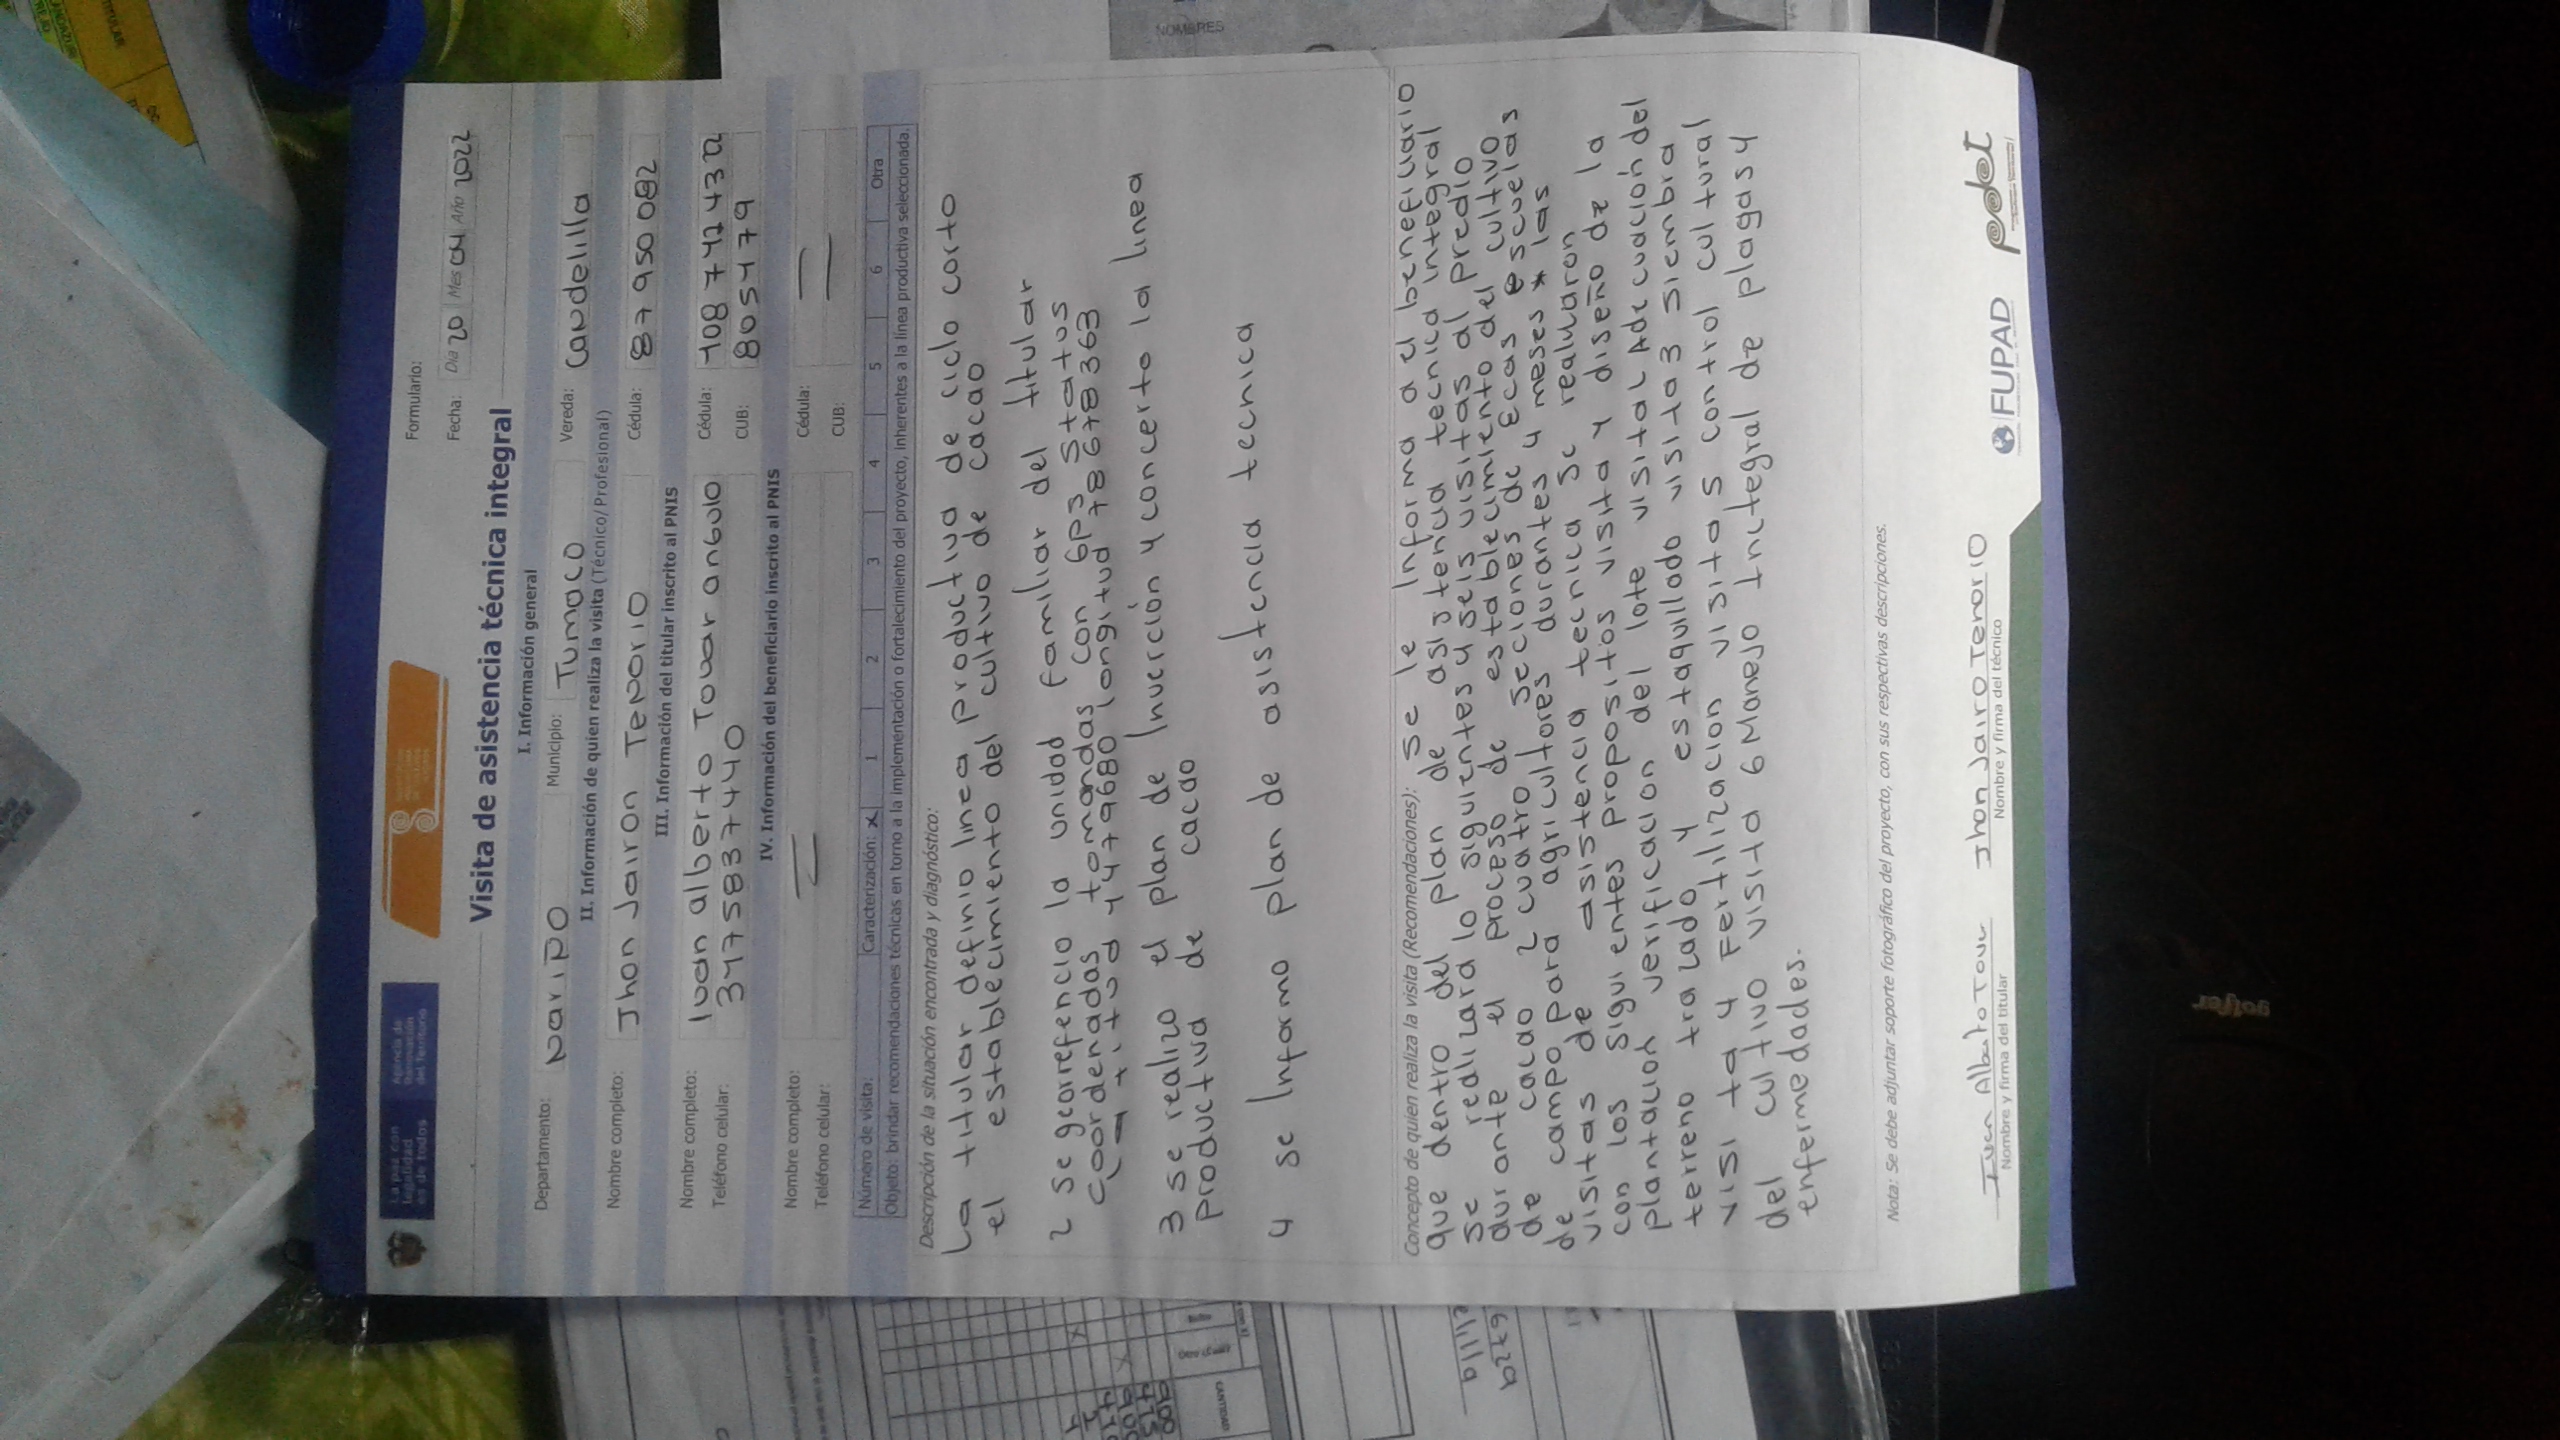 La paz con legalidad es de todos
Agencia de Renovación del Territorio
Formulario:
Fecha: Día 20 Mes 04 Año 2022
Visita de asistencia técnica integral
I. Información general
Departamento: Nariño Municipio: Tumaco Vereda: Candelilla
II. Información de quien realiza la visita (Técnico/ Profesional)
Nombre completo: Jhon Jairon Tenorio Cédula: 87950082
III. Información del titular inscrito al PNIS
Nombre completo: Ivan alberto Tovar angulo Cédula:
Teléfono celular: 3175837440 CUB: 805479
IV. Información del beneficiario inscrito al PNIS
Nombre completo: Cédula:
Teléfono celular: CUB:
Número de visita: Caracterización: x 1 2 3 4 5 6 Otra
Objeto: brindar recomendaciones técnicas en torno a la implementación o fortalecimiento del proyecto, inherentes a la línea productiva seleccionada.
Descripción de la situación encontrada y diagnóstico:
La titular definio linea productiva de ciclo corto
el establecimiento del cultivo de cacao
2 se georreferencio la unidad familiar del titular
coordenadas tomandas con GPS Status
Latitud 1.479680 longitud 78678363
3 se realizo el plan de Inverción y concerto la linea
productiva de cacao
4 se Informo plan de asistencia tecnica
Concepto de quien realiza la visita (Recomendaciones): Se le Informa a el beneficiario
que dentro del plan de asistencia tecnica integral
se realizara lo siguientes y seis visitas al predio
durante el proceso de establecimiento del cultivo
de cacao 2 cuatro secciones de Ecas escuelas
de campo para agricultores durantes 4 meses * las
visitas de asistencia tecnica se realizaron
con los siguientes propositos visita 1 diseño de la
plantación verificacion del lote visita 2 Adecuación del
terreno trazado y estaquillado visita 3 siembra
visita 4 Fertilizacion visita 5 control cultural
del cultivo visita 6 Manejo Integral de plagas y
enfermedades.
Nota: Se debe adjuntar soporte fotográfico del proyecto, con sus respectivas descripciones.
Ivan Alberto Tovar Jhon Jairo Tenorio
Nombre y firma del titular Nombre y firma del técnico
FUPAD pdet
NOMBRES
TITULAR
CANTIDAD
golfer